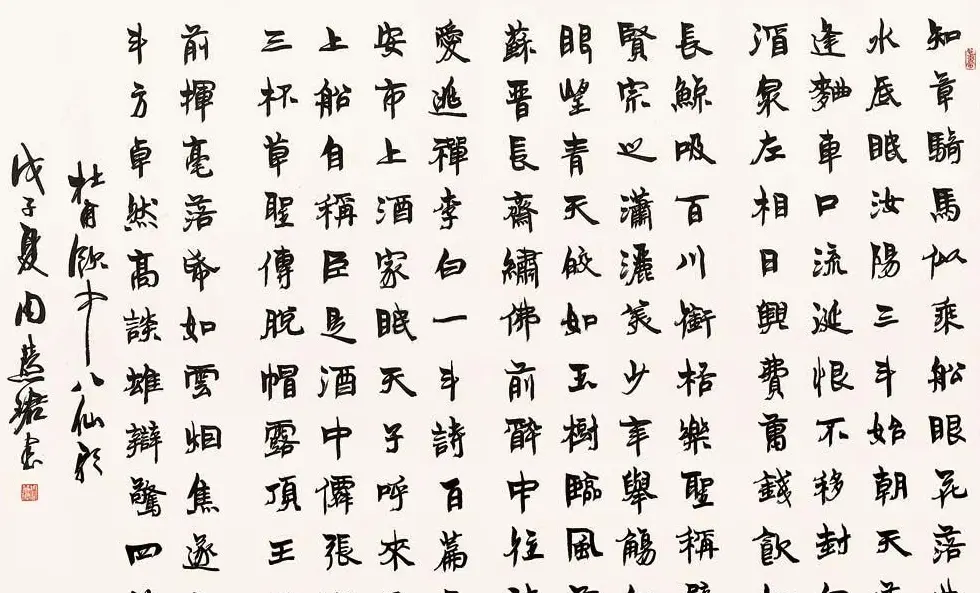 知章騎馬似乘船眼花落
水底眠汝陽三斗始朝天
逢麴車口流涎恨不移封
酒泉左相日興費萬錢飲
長鯨吸百川銜桮樂聖稱
賢宗之瀟灑美少年舉觴
眼望青天皎如玉樹臨風
蘇晉長齋繡佛前醉中往
愛逃禪李白一斗詩百篇
安市上酒家眠天子呼來
上船自稱臣是酒中僊張
三杯草聖傳脫帽露頂王
前揮毫落帋如雲烟焦遂
斗方卓然高談雄辯驚四
杜甫飲中八仙歌
戊子夏周慧珺書